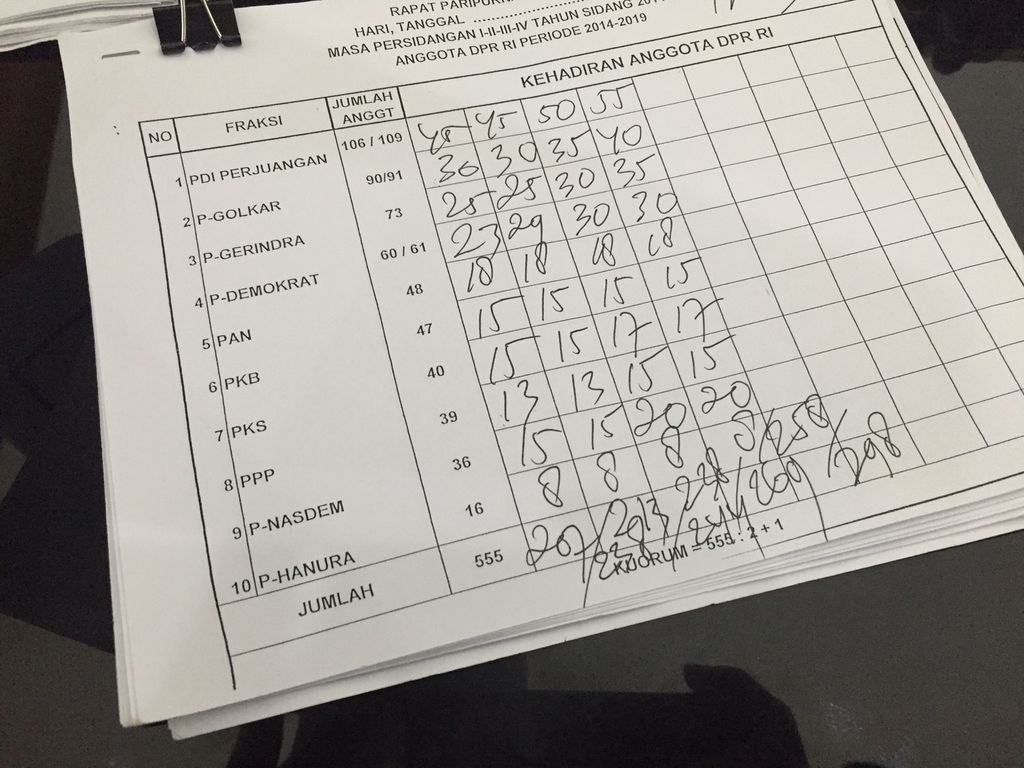 RAPAT PARIPURN
HARI, TANGGAL ..................
MASA PERSIDANGAN I-II-III-IV TAHUN SIDANG 201
ANGGOTA DPR RI PERIODE 2014-2019
NO FRAKSI JUMLAH ANGGT KEHADIRAN ANGGOTA DPR RI
1 PDI PERJUANGAN 106 / 109 45 45 50 55
2 P-GOLKAR 90/91 30 30 35 40
3 P-GERINDRA 73 25 25 30 35
4 P-DEMOKRAT 60 / 61 23 29 30 30
5 PAN 48 18 18 18 18
6 PKB 47 15 15 15 15
7 PKS 40 15 15 17 17
8 PPP 39 13 13 15 15
9 P-NASDEM 36 15 15 20 20
10 P-HANURA 16 8 8 8 8
JUMLAH 555 207 / 213 / / 258 / 298
KUORUM = 555 : 2 + 1